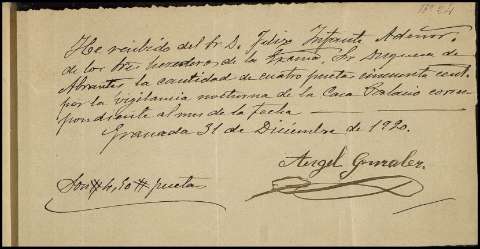 Nº 24
He recibido del Sr. D. Felix Infante Admor.
de los tres herederos de la Exma. Sra. Duquesa de
Abrantes la cantidad de cuatro pesetas cincuenta cent.
por la vigilancia nocturna de la Casa Palacio corres-
pondiente al mes de la fecha
Granada 31 de Diciembre de 1920.
Angel Gonzalez.
Son # 4,50 # pesetas